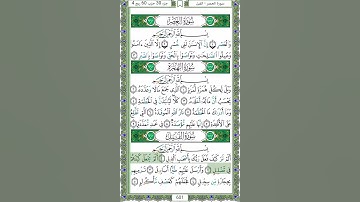 سورة العصر - الفيل
جزء 30 حزب 60 ربع 4
سُورَةُ العَصْرِ
بِسْمِ ٱللَّهِ ٱلرَّحْمَٰنِ ٱلرَّحِيمِ
وَٱلْعَصْرِ ١ إِنَّ ٱلْإِنسَٰنَ لَفِى خُسْرٍ ٢ إِلَّا ٱلَّذِينَ ءَامَنُوا۟
وَعَمِلُوا۟ ٱلصَّٰلِحَٰتِ وَتَوَاصَوْا۟ بِٱلْحَقِّ وَتَوَاصَوْا۟ بِٱلصَّبْرِ ٣
سُورَةُ الهُمَزَةِ
بِسْمِ ٱللَّهِ ٱلرَّحْمَٰنِ ٱلرَّحِيمِ
وَيْلٌ لِّكُلِّ هُمَزَةٍ لُّمَزَةٍ ١ ٱلَّذِى جَمَعَ مَالًا وَعَدَّدَهُۥ ٢
يَحْسَبُ أَنَّ مَالَهُۥٓ أَخْلَدَهُۥ ٣ كَلَّا لَيُنۢبَذَنَّ فِى ٱلْحُطَمَةِ ٤
وَمَآ أَدْرَىٰكَ مَا ٱلْحُطَمَةُ ٥ نَارُ ٱللَّهِ ٱلْمُوقَدَةُ ٦ ٱلَّتِى تَطَّلِعُ
عَلَى ٱلْأَفْـِٔدَةِ ٧ إِنَّهَا عَلَيْهِم مُّؤْصَدَةٌ ٨ فِى عَمَدٍ مُّمَدَّدَةٍۭ ٩
سُورَةُ الفِيلِ
بِسْمِ ٱللَّهِ ٱلرَّحْمَٰنِ ٱلرَّحِيمِ
أَلَمْ تَرَ كَيْفَ فَعَلَ رَبُّكَ بِأَصْحَٰبِ ٱلْفِيلِ ١ أَلَمْ يَجْعَلْ كَيْدَهُمْ
فِى تَضْلِيلٍ ٢ وَأَرْسَلَ عَلَيْهِمْ طَيْرًا أَبَابِيلَ ٣ تَرْمِيهِم
بِحِجَارَةٍ مِّن سِجِّيلٍ ٤ فَجَعَلَهُمْ كَعَصْفٍ مَّأْكُولٍۭ ٥
601